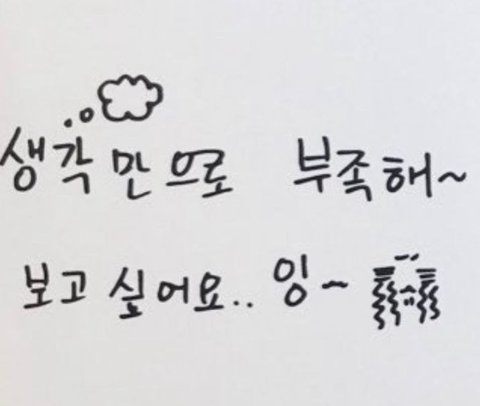 생각만으로 부족해~
보고 싶어요.. 잉~